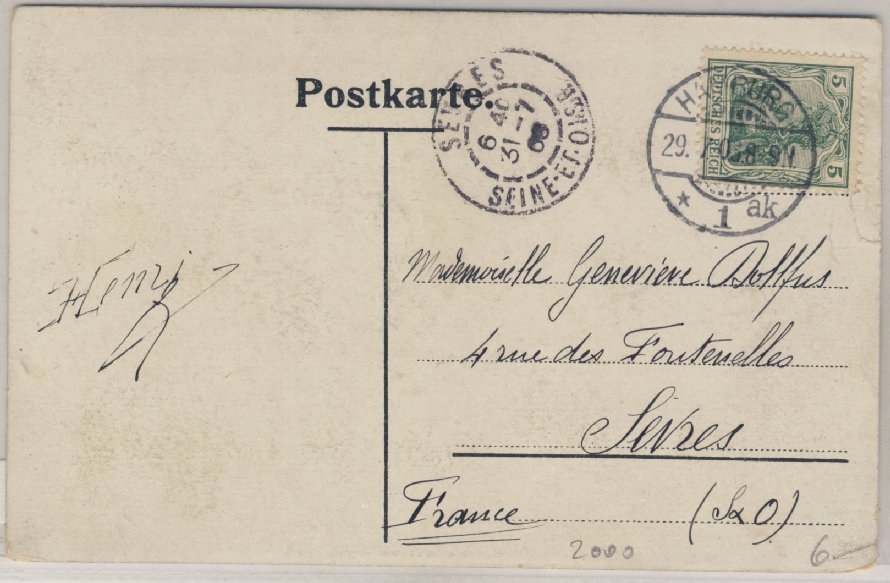 Postkarte.
SEVRES
6 40
31 - 7
08
SEINE-ET-OISE
HAMBURG
29. 7. 08. 8-9 N
* 1 ak
5 5
DEUTSCHES REICH
Henri
Mademoiselle Geneviève Dollfus
4 rue des Fontenelles
Sèvres
France (S & O)
2000
6